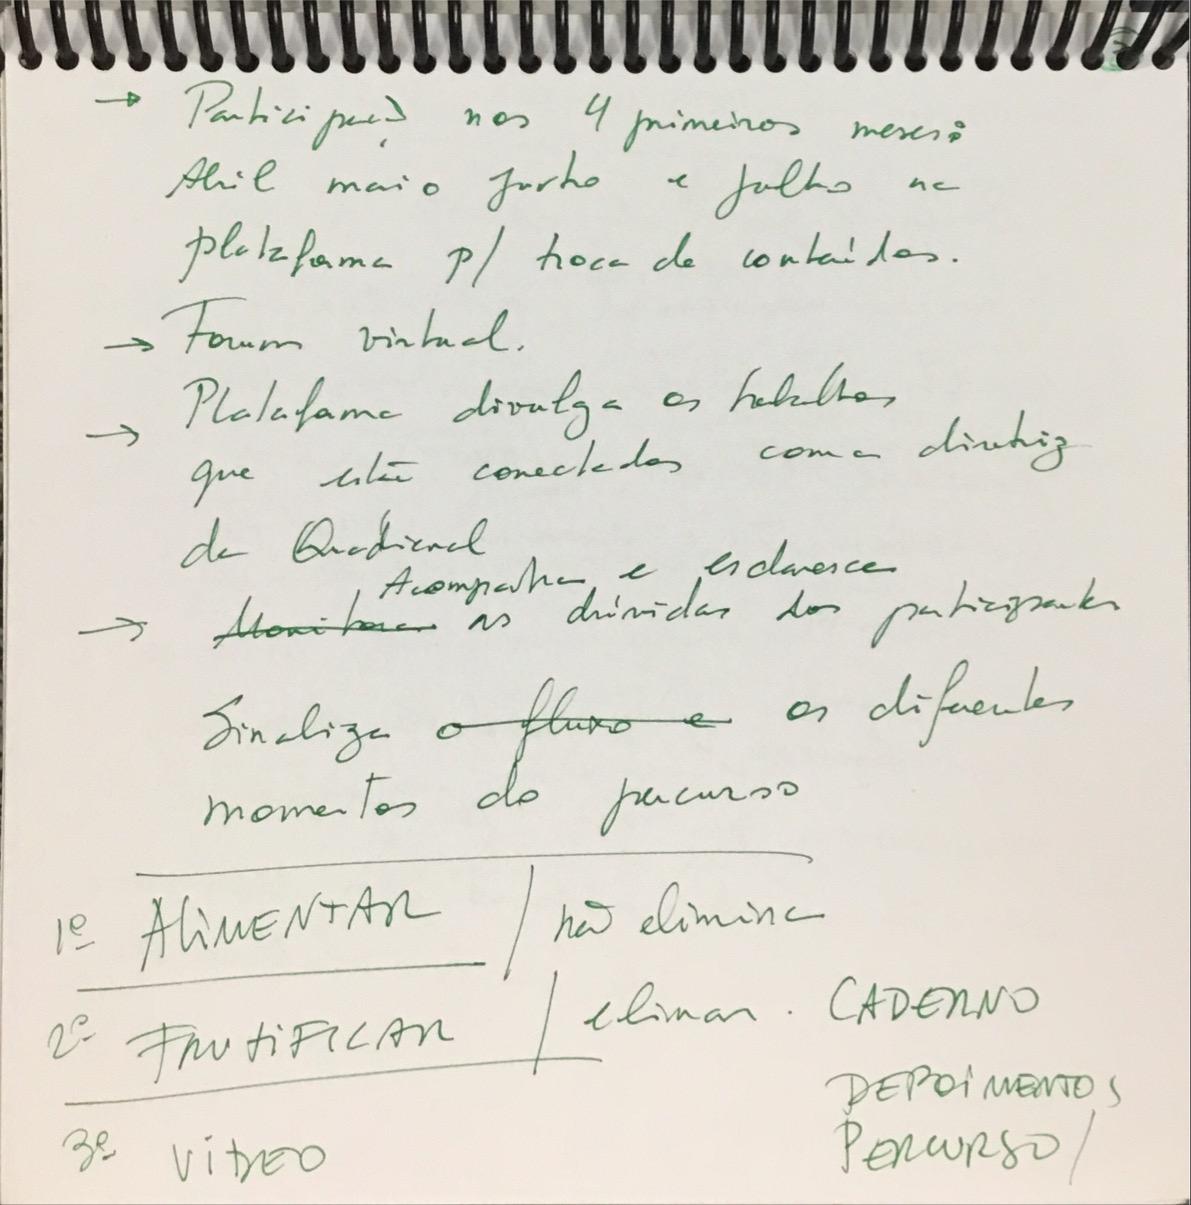 → Participação nos 4 primeiros meses:
Abril maio junho e julho na
plataforma p/ troca de conteúdos.
→ Forum virtual.
→ Plataforma divulga os trabalhos
que estão conectados com a diretriz
da Quadrienal
Acompanha e esclaresce
→ Monitora as dúvidas dos participantes
Sinaliza o fluxo e os diferentes
momentos do percurso
1º ALIMENTAR / não elimina
2º FRUTIFICAR / eliminar. CADERNO
DEPOIMENTOS
3º VÍDEO PERCURSO/